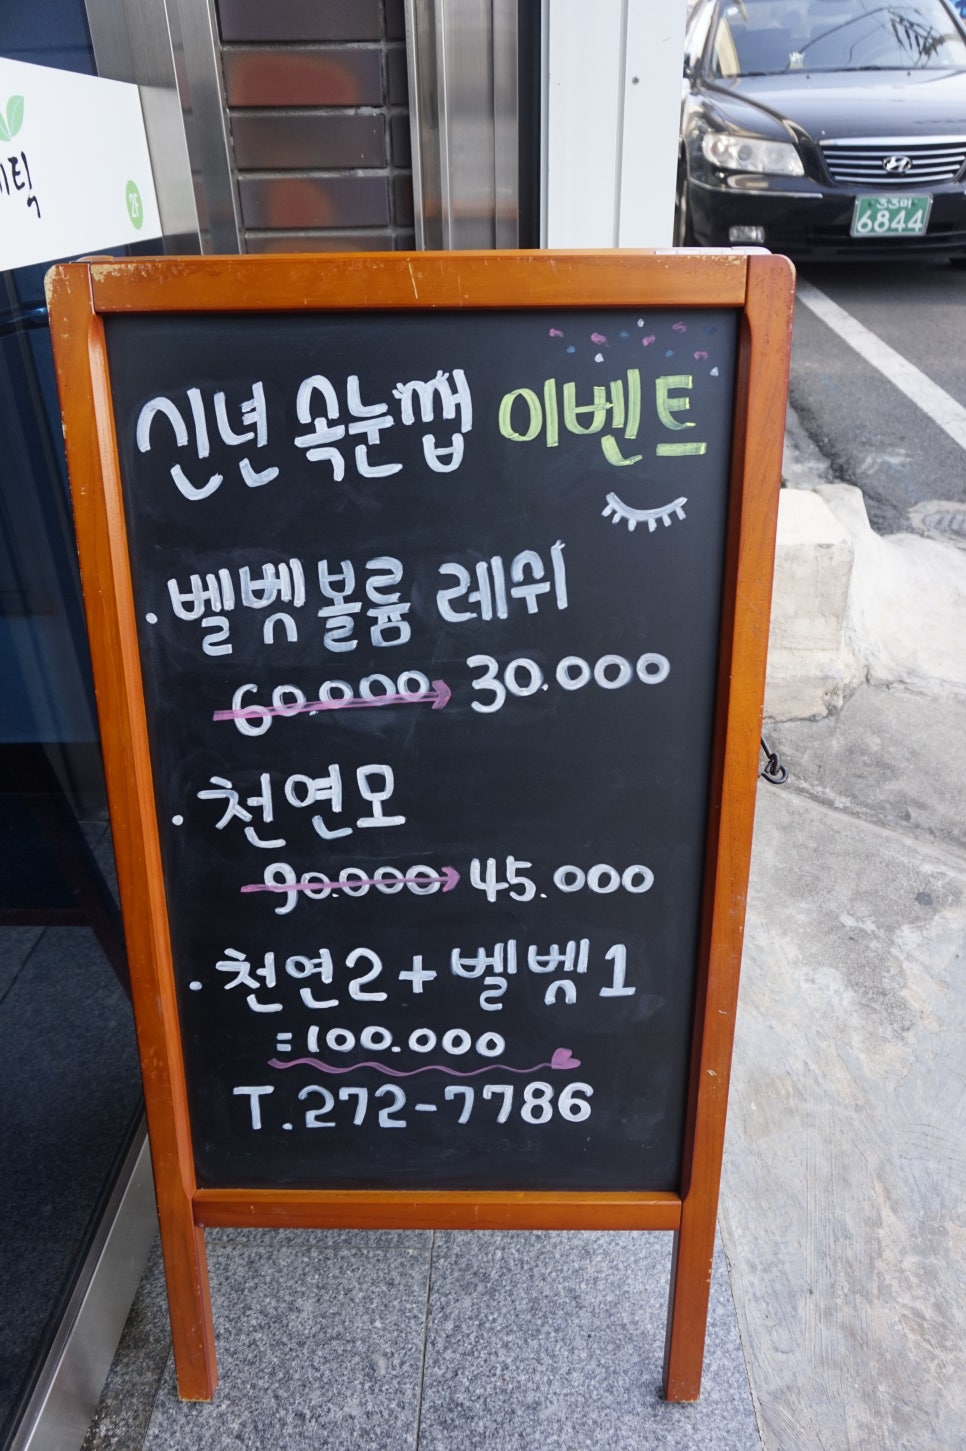 2F
33머
6844
신년 속눈썹 이벤트
· 벨벳볼륨 레쉬
60.000 30.000
· 천연모
90.000 45.000
· 천연2+벨벳1
=100.000
T.272-7786